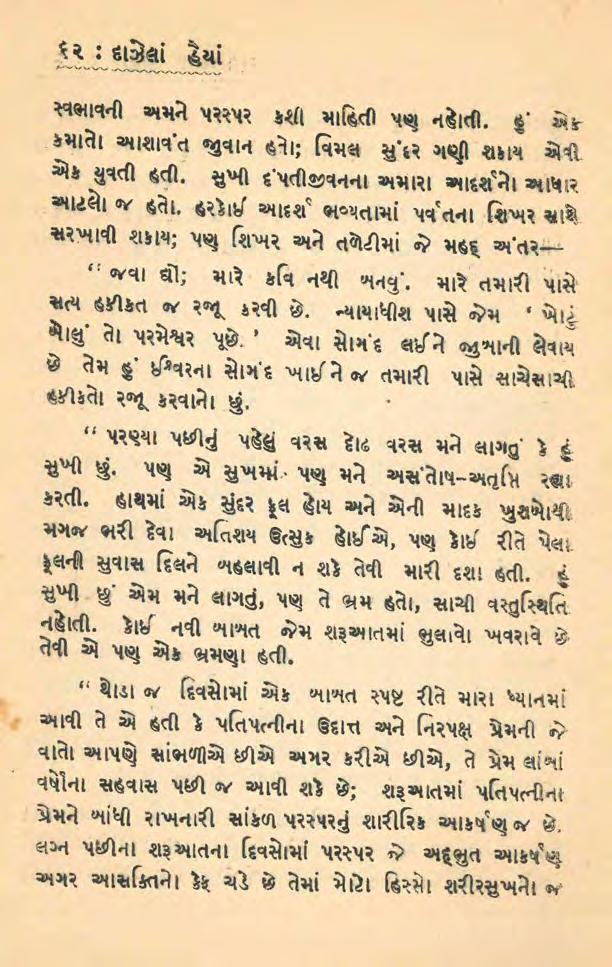 ૬૨ : દાઝેલાં હૈયાં
સ્વભાવની અમને પરસ્પર કશી માહિતી પણ નહોતી. હું એક
કમાતો આશાવંત જુવાન હતો; વિમલ સુંદર ગણી શકાય એવી
એક યુવતી હતી. સુખી દંપતીજીવનના અમારા આદર્શનો આધાર
આટલો જ હતો. હરકોઈ આદર્શ ભવ્યતામાં પર્વતના શિખર સાથે
સરખાવી શકાય; પણ શિખર અને તળેટીમાં જે મહદ્ અંતર—
“જવા દ્યો; મારે કવિ નથી બનવું. મારે તમારી પાસે
સત્ય હકીકત જ રજૂ કરવી છે. ન્યાયાધીશ પાસે જેમ ‘ખોટું
બોલું તો પરમેશ્વર પૂછે.’ એવા સોગંદ લઈને જુબાની લેવાય
છે તેમ હું ઈશ્વરના સોગંદ ખાઈને જ તમારી પાસે સાચેસાચી
હકીકતો રજૂ કરવાનો છું.
“પરણ્યા પછીનું પહેલું વરસ દોઢ વરસ મને લાગતું કે હું
સુખી છું. પણ એ સુખમાં પણ મને અસંતોષ-અતૃપ્તિ રહ્યા
કરતી. હાથમાં એક સુંદર ફૂલ હોય અને એની માદક ખુશબોથી
મગજ ભરી દેવા અતિશય ઉત્સુક હોઈએ, પણ કોઈ રીતે પેલા
ફૂલની સુવાસ દિલને બહલાવી ન શકે તેવી મારી દશા હતી. હું
સુખી છું એમ મને લાગતું, પણ તે ભ્રમ હતો, સાચી વસ્તુસ્થિતિ
નહોતી. કોઈ નવી બાબત જેમ શરૂઆતમાં ભુલાવો ખવરાવે છે
તેવી એ પણ એક ભ્રમણા હતી.
“થોડા જ દિવસોમાં એક બાબત સ્પષ્ટ રીતે મારા ધ્યાનમાં
આવી તે એ હતી કે પતિપત્નીના ઉદાત્ત અને નિરપક્ષ પ્રેમની જે
વાતો આપણે સાંભળીએ છીએ અગર કરીએ છીએ, તે પ્રેમ લાંબાં
વર્ષોના સહવાસ પછી જ આવી શકે છે; શરૂઆતમાં પતિપત્નીના
પ્રેમને બાંધી રાખનારી સાંકળ પરસ્પરનું શારીરિક આકર્ષણ જ છે.
લગ્ન પછીના શરૂઆતના દિવસોમાં પરસ્પર જે અદ્ભુત આકર્ષણ
અગર આસક્તિનો કેફ ચડે છે તેમાં મોટો હિસ્સો શરીરસુખનો જ